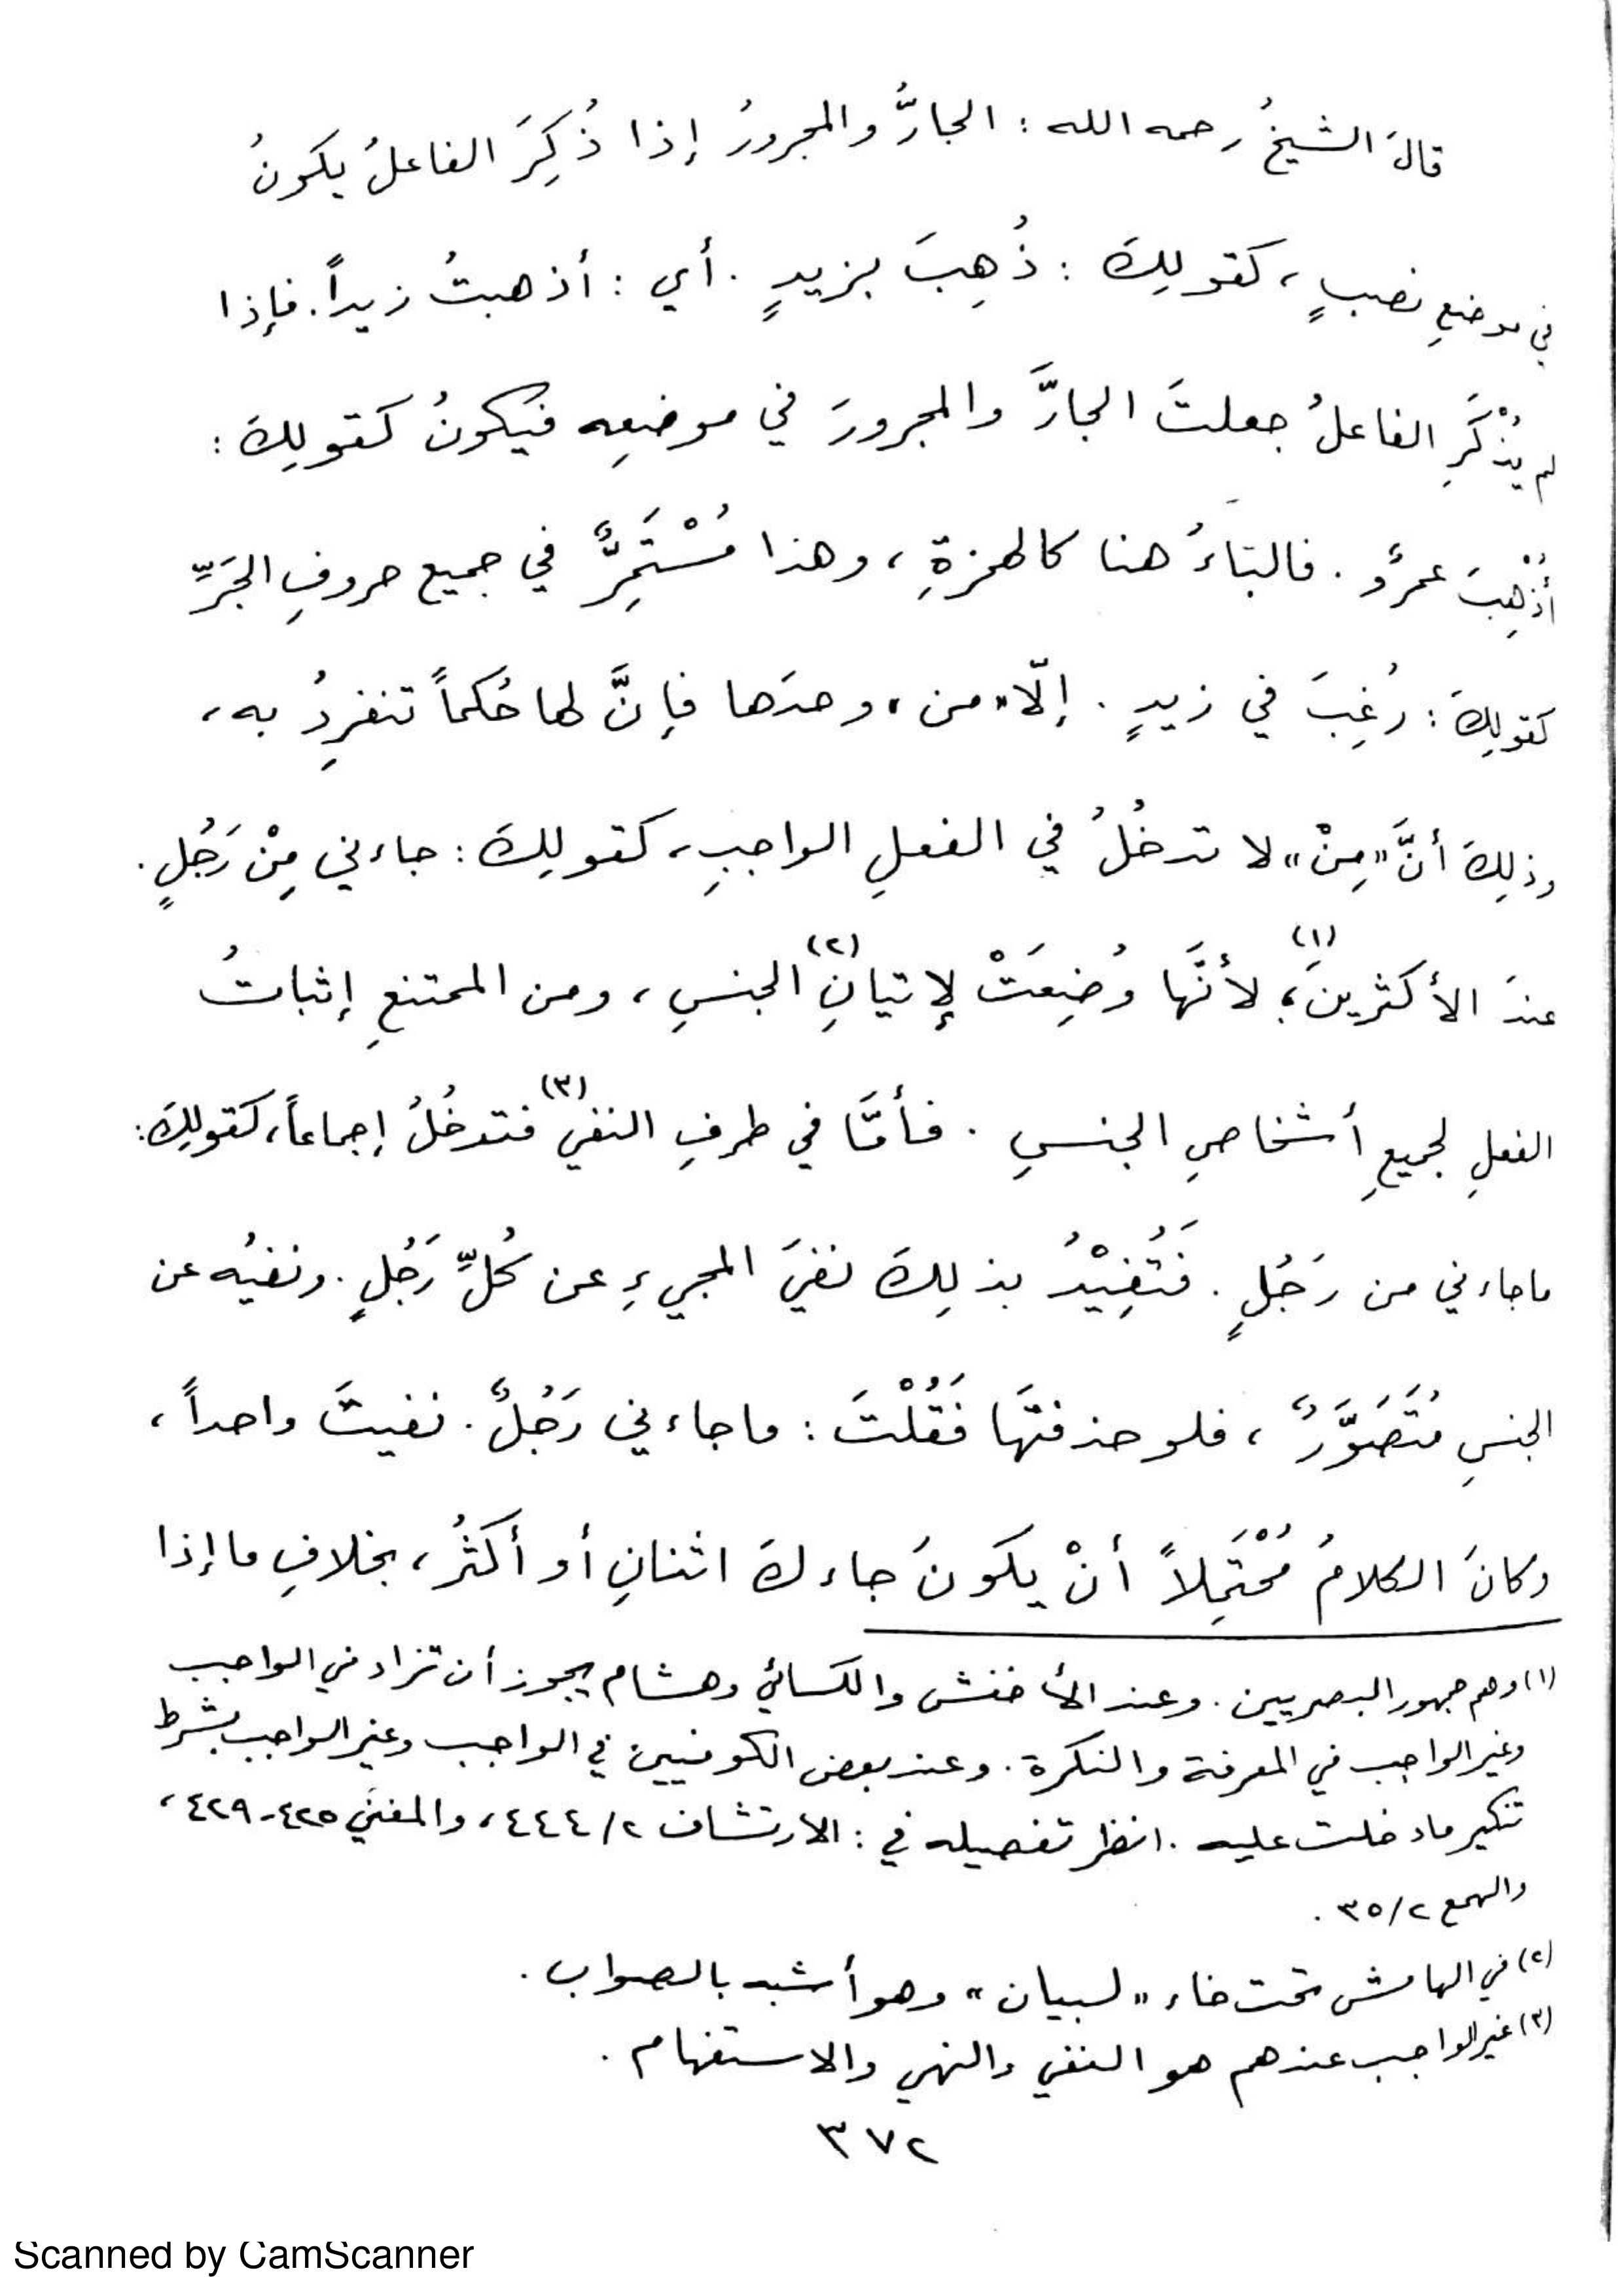 قالَ الشيخُ رحمه الله : الجارُّ والمجرورُ إذا ذُكِرَ الفاعلُ يكونُ
في موضعِ نصبٍ ، كقولِكَ : ذُهِبَ بزيدٍ . أي : أذهبتُ زيداً . فإذا
لم يُذْكَرِ الفاعلُ جعلتَ الجارَّ والمجرورَ في موضعِه فيكونُ كقولِكَ :
أُذْهِبَ عمرٌو . فالباءُ هنا كالهمزةِ ، وهذا مُسْتَمِرٌّ في جميع حروفِ الجَرِّ
كقولِكَ : رُغِبَ في زيدٍ . إلّا «من» وحدَها فإنَّ لها حُكماً تنفردُ به ،
وذلِكَ أنَّ «مِنْ» لا تدخُلُ في الفعلِ الواجبِ ، كقولِكَ : جاءني مِنْ رَجُلٍ .
عندَ الأكثرينَ(١) ؛ لأنَّها وُضِعَتْ لإتيانِ(٢) الجنسِ ، ومن الممتنعِ إثباتُ
الفعلِ لجميعِ أشخاصِ الجنسِ . فأمَّا في طرفِ النفي(٣) فتدخُلُ إجماعاً ، كقولِكَ :
ما جاءني من رَجُلٍ . فَتُفِيْدُ بذلِكَ نفيَ المجيءِ عن كُلِّ رَجُلٍ . ونفيُه عن
الجنسِ مُتَصَوَّرٌ ، فلو حذفتَها فَقُلْتَ : ما جاءني رَجُلٌ . نفيتَ واحداً ،
وكانَ الكلامُ مُحْتَمِلاً أنْ يكونَ جاءكَ اثنانِ أو أكثرُ ، بخلافِ ما إذا
(١) وهم جمهور البصريين . وعند الأخفش والكسائي وهشام يجوز أن تزاد في الواجب
وغير الواجب في المعرفة والنكرة . وعند بعض الكوفيين في الواجب وغير الواجب بشرط
تنكير ما دخلت عليه . انظر تفصيله في : الارتشاف ٢/٤٤٤ ، والمغني ٤٢٥-٤٢٩ ،
والهمع ٢/٣٥ .
(٢) في الهامش تحت خاء «لبيان» وهو أشبه بالصواب .
(٣) غير الواجب عندهم هو النفي والنهي والاستفهام .
٣٧٢
Scanned by CamScanner